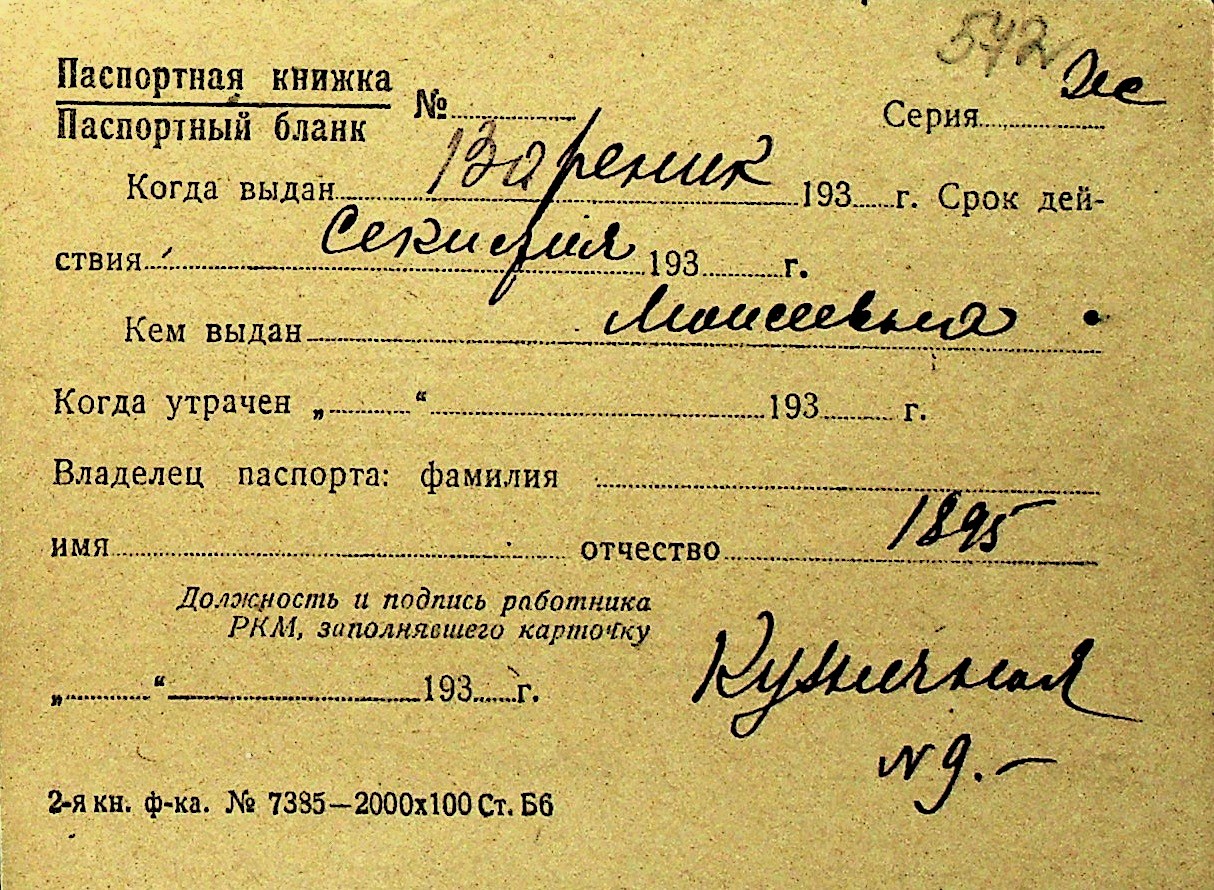 542 Жс
Паспортная книжка
Паспортный бланк № Серия
Вареник
Когда выдан 193 г. Срок дей-
Секлия
ствия 193 г.
Моисеевна
Кем выдан
Когда утрачен „ “ 193 г.
Владелец паспорта: фамилия
1895
имя отчество
Должность и подпись работника
РКМ, заполнявшего карточку
Кузнечная
„ “ 193 г.
N 9.–
2-я кн. ф-ка. № 7385–2000х100 Ст. Б6